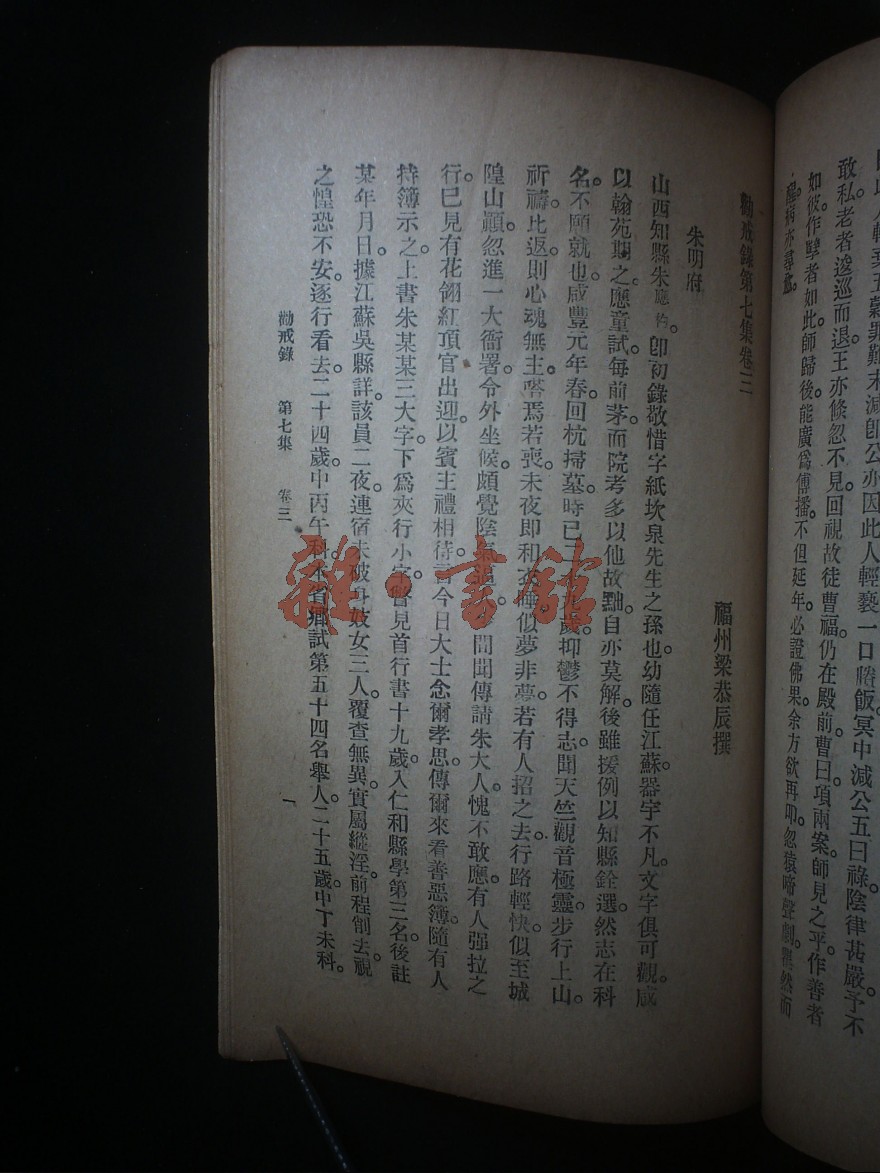 敢私老者逡巡而退王亦倏忽不見回視故徒曹福仍在殿前曹曰項兩案師見之平作善者
如彼作孽者如此師歸後能廣爲傳播不但延年必證佛果余方欲再叩忽猿啼聲劇然而
醒病亦尋愈
勸戒錄第七集卷三
福州梁恭辰撰
朱明府
山西知縣朱應杓。卽初錄敬惜字紙坎泉先生之孫也幼隨任江蘇器宇不凡文字俱可觀咸
以翰苑期之應童試每前茅而院考多以他故黜。自亦莫解後雖援例以知縣銓選然志在科
名。不願就也咸豐元年春回杭掃墓時已二十九歲抑鬱不得志聞天竺觀音極靈步行上山。
祈禱比返則心魂無主嗒焉若喪未夜即和衣睡似夢非夢若有人招之去行路輕快似至城
隍山巔忽進一大衙署令外坐候頗覺陰氣逼人間聞傳請朱大人愧不敢應有人强拉之
行。已見有花翎紅頂官出迎以賓主禮相待言今日大士念爾孝思傳爾來看善惡簿隨有人
持簿示之上書朱某某三大字下爲夾行小字瞥見首行書十九歲入仁和縣學第三名後註
某年月日據江蘇吳縣詳該員二夜連宿未破身妓女三人覆查無異實屬縱淫前程削去視
之惶恐不安逐行看去二十四歲中丙午科本省鄕試第五十四名舉人二十五歲中丁未科。
勸戒錄 第七集 卷三 一
雜·書館